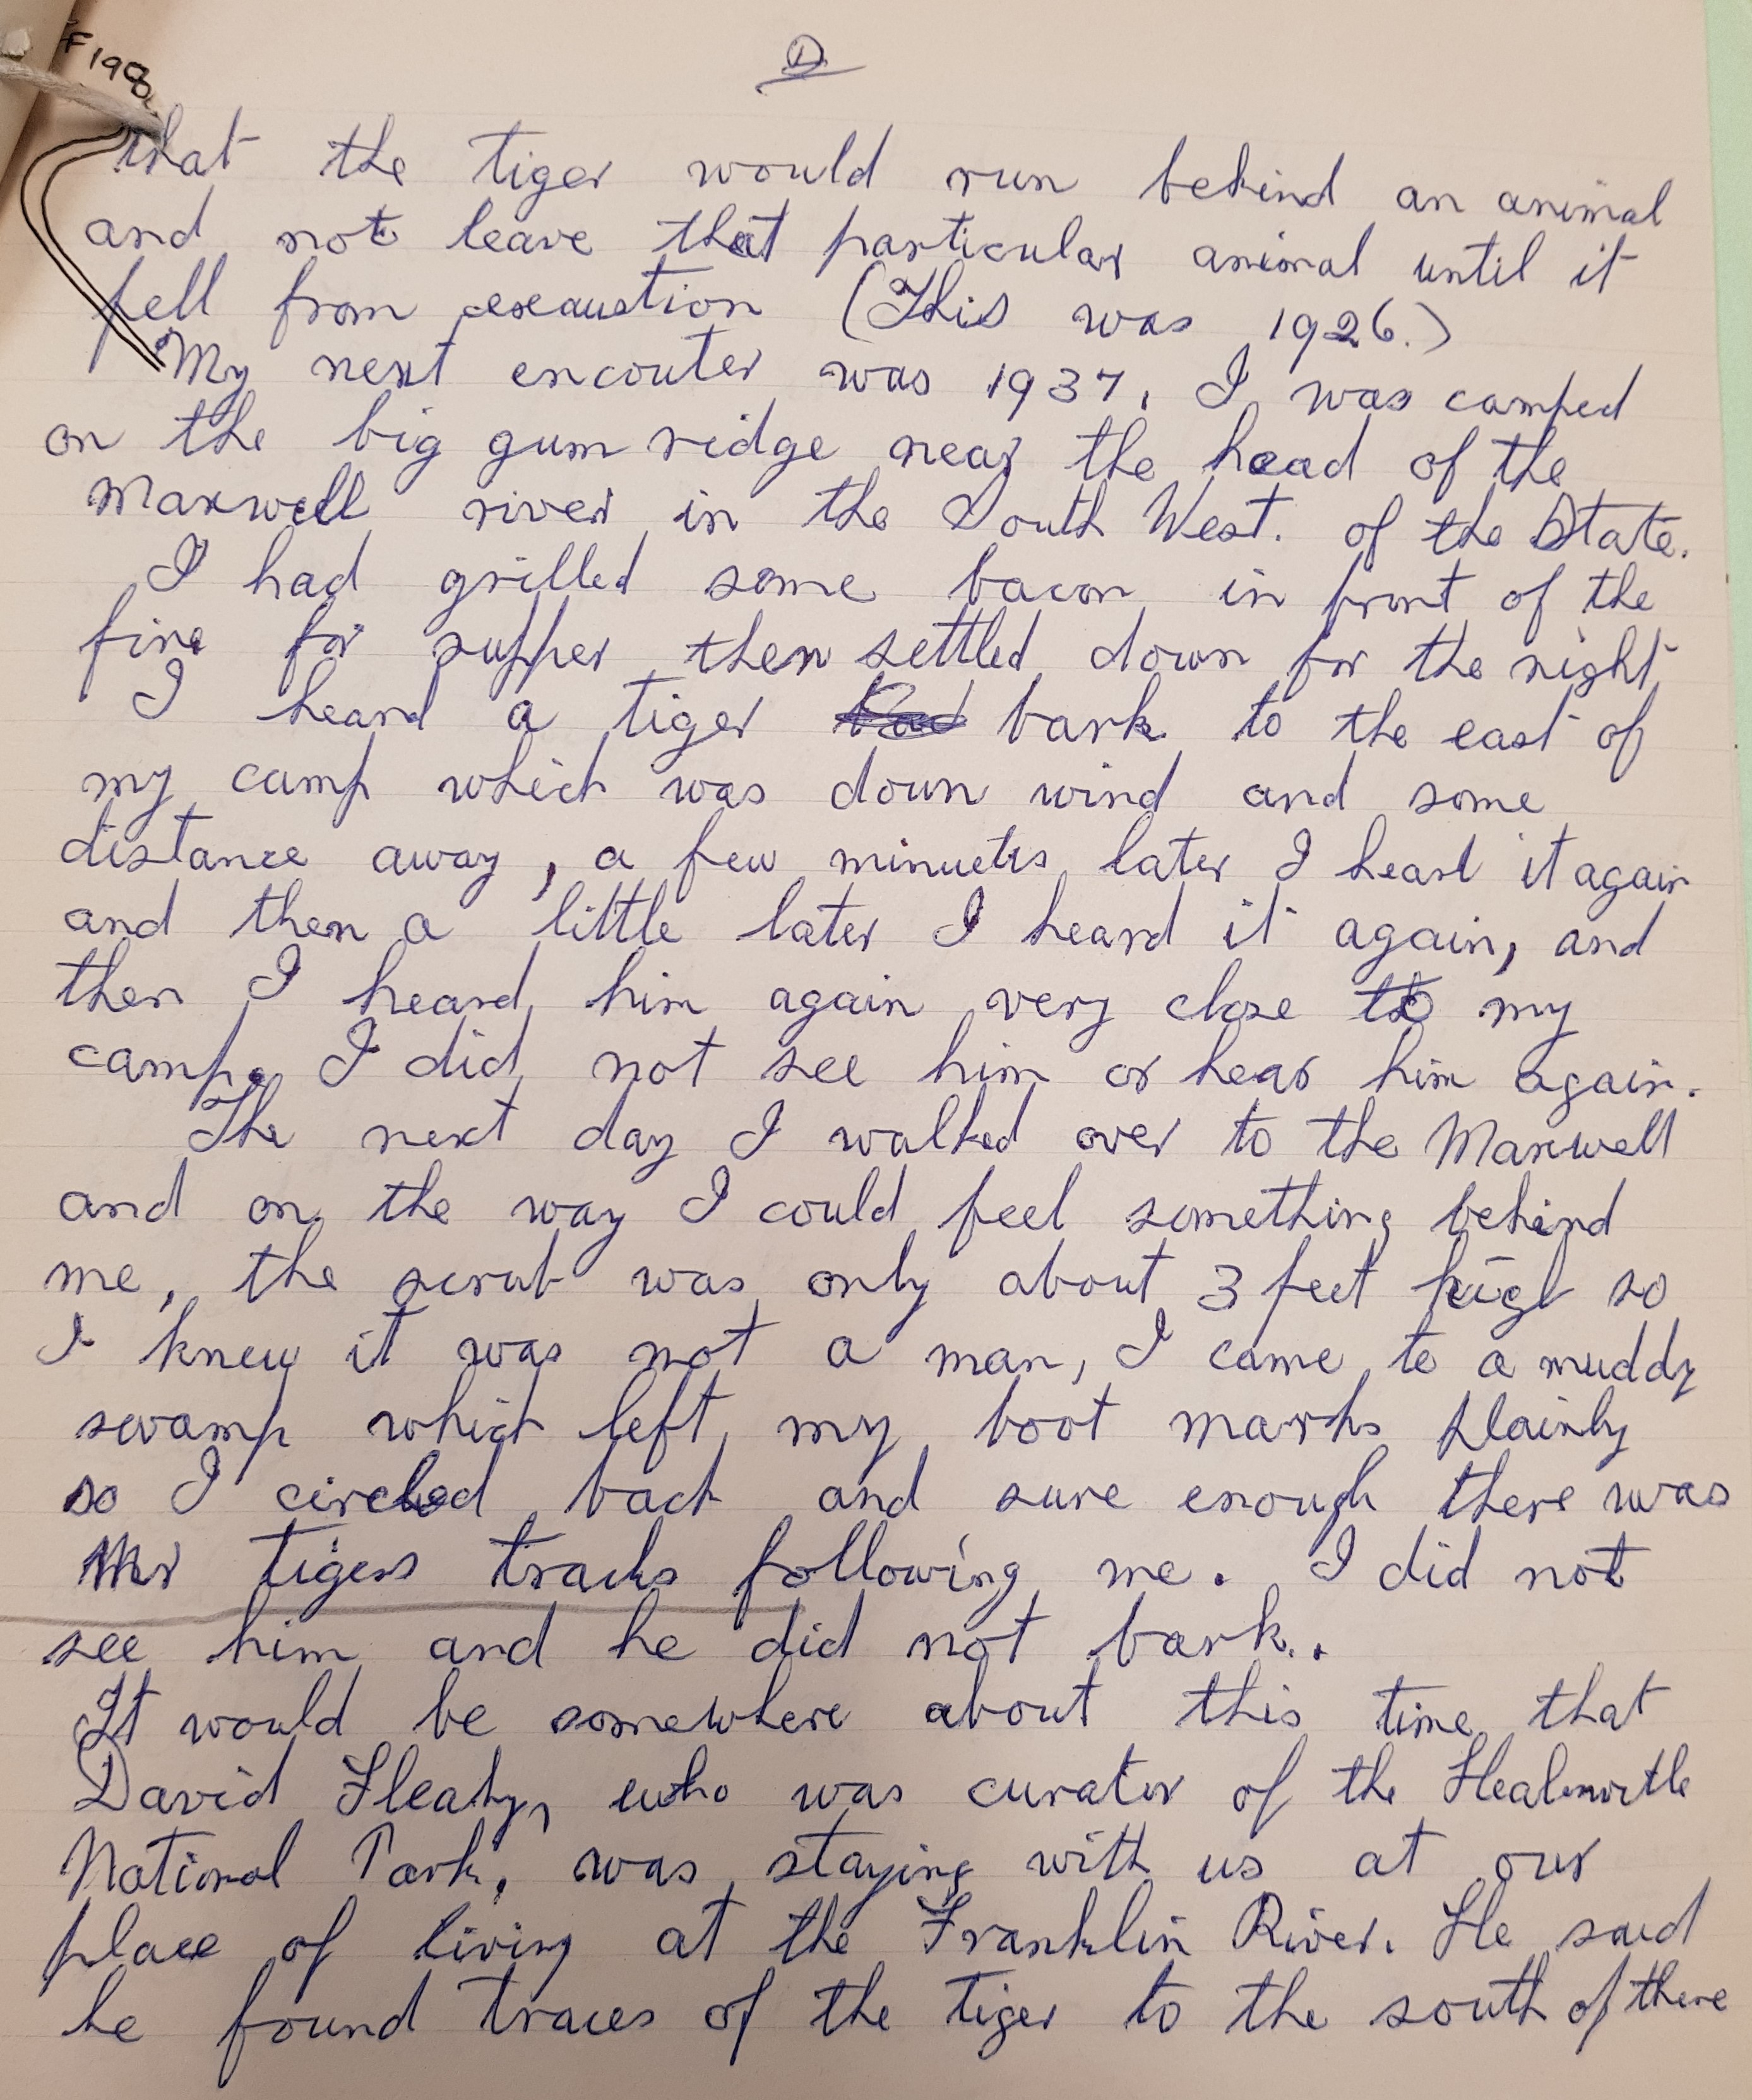 F198
that the tiger would run behind an animal
and not leave that particular animal until it
fell from exaustion (This was 1926.)
My next encouter was 1937, I was camped
on the big gum ridge near the head of the
Maxwell river in the South West. of the State.
I had grilled some bacon in front of the
fire for supper then settled down for the night
I heard a tiger bark to the east of
my camp which was down wind and some
distance away, a few minuets later I heard it again
and then a little later I heard it again, and
then I heard him again very close to my
camp. I did not see him or hear him again.
The next day I walked over to the Maxwell
and on the way I could feel something behind
me, the scrub was only about 3 feet high so
I knew it was not a man, I came to a muddy
swamp which left my boot marks plainly
so I circled back and sure enough there was
Mr tigers tracks following me. I did not
see him and he did not bark.
It would be somewhere about this time that
David Fleahy, who was curator of the
National Park, was staying with us at our
place of living at the Franklin River. He said
he found traces of the tiger to the south of there